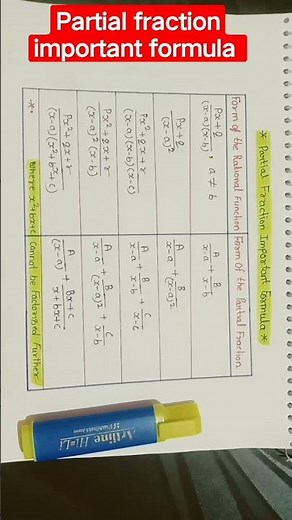 Partial fraction
important formula
* Partial Fraction Important Formula *
Form of the Rational Function Form Of the Partial Fraction
Px+q/(x-a)(x-b), a ≠ b A/x-a + B/x-b
Px+q/(x-a)² A/x-a + B/(x-a)²
Px²+qx+r/(x-a)(x-b)(x-c) A/x-a + B/x-b + C/x-c
Px²+qx+r/(x-a)²(x-b) A/x-a + B/(x-a)² + C/x-b
Px²+qx+r/(x-a)(x²+bx+c) A/(x-a) + Bx+C/x+bx+c
*• Where x²+bx+c Cannot be Factorised Further
Artline Hi-Li